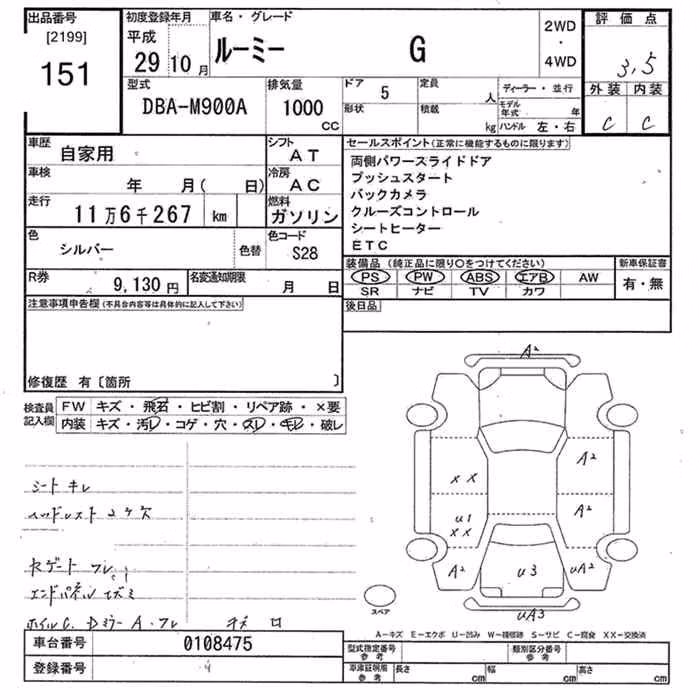 出品番号
[2199]
151
初度登録年月
平成
29 10月
車名・グレード
ルーミー G
2WD
・
4WD
評価点
3.5
外装 内装
C C
型式
DBA-M900A
排気量
1000
CC
ドア 5
形状
定員 人
積載 kg
ディーラー・並行
モデル年式 年
ハンドル 左・右
車歴
自家用
シフト
AT
車検
年 月( 日)
冷房
AC
走行
11万6千267 km
燃料
ガソリン
色
シルバー
色替
色コード
S28
R券
9,130円
名変通知期限
月 日
セールスポイント(正常に機能するものに限ります)
両側パワースライドドア
プッシュスタート
バックカメラ
クルーズコントロール
シートヒーター
ETC
装備品(純正品に限り○をつけてください)
新車保証書
PS PW ABS エアB AW
有・無
SR ナビ TV カワ
後日品
注意事項申告欄(不具合内容等は具体的に記入して下さい)
修復歴 有〔箇所 〕
検査員
記入欄
FW キズ・飛石・ヒビ割・リペア跡・×要
内装 キズ・汚レ・コゲ・穴・スレ・モレ・破レ
シート キレ
エンドパネル
A2
A2
XX
A2
U1
XX
A2
U3
UA2
UA3
スペア
A-キズ E-エクボ U-凹み W-補修跡 S-サビ C-腐食 XX-交換済
車台番号 0108475
登録番号
型式指定番号
参考
類別区分番号
参考
車庫証明用
参考
長さ cm
幅 cm
高さ cm